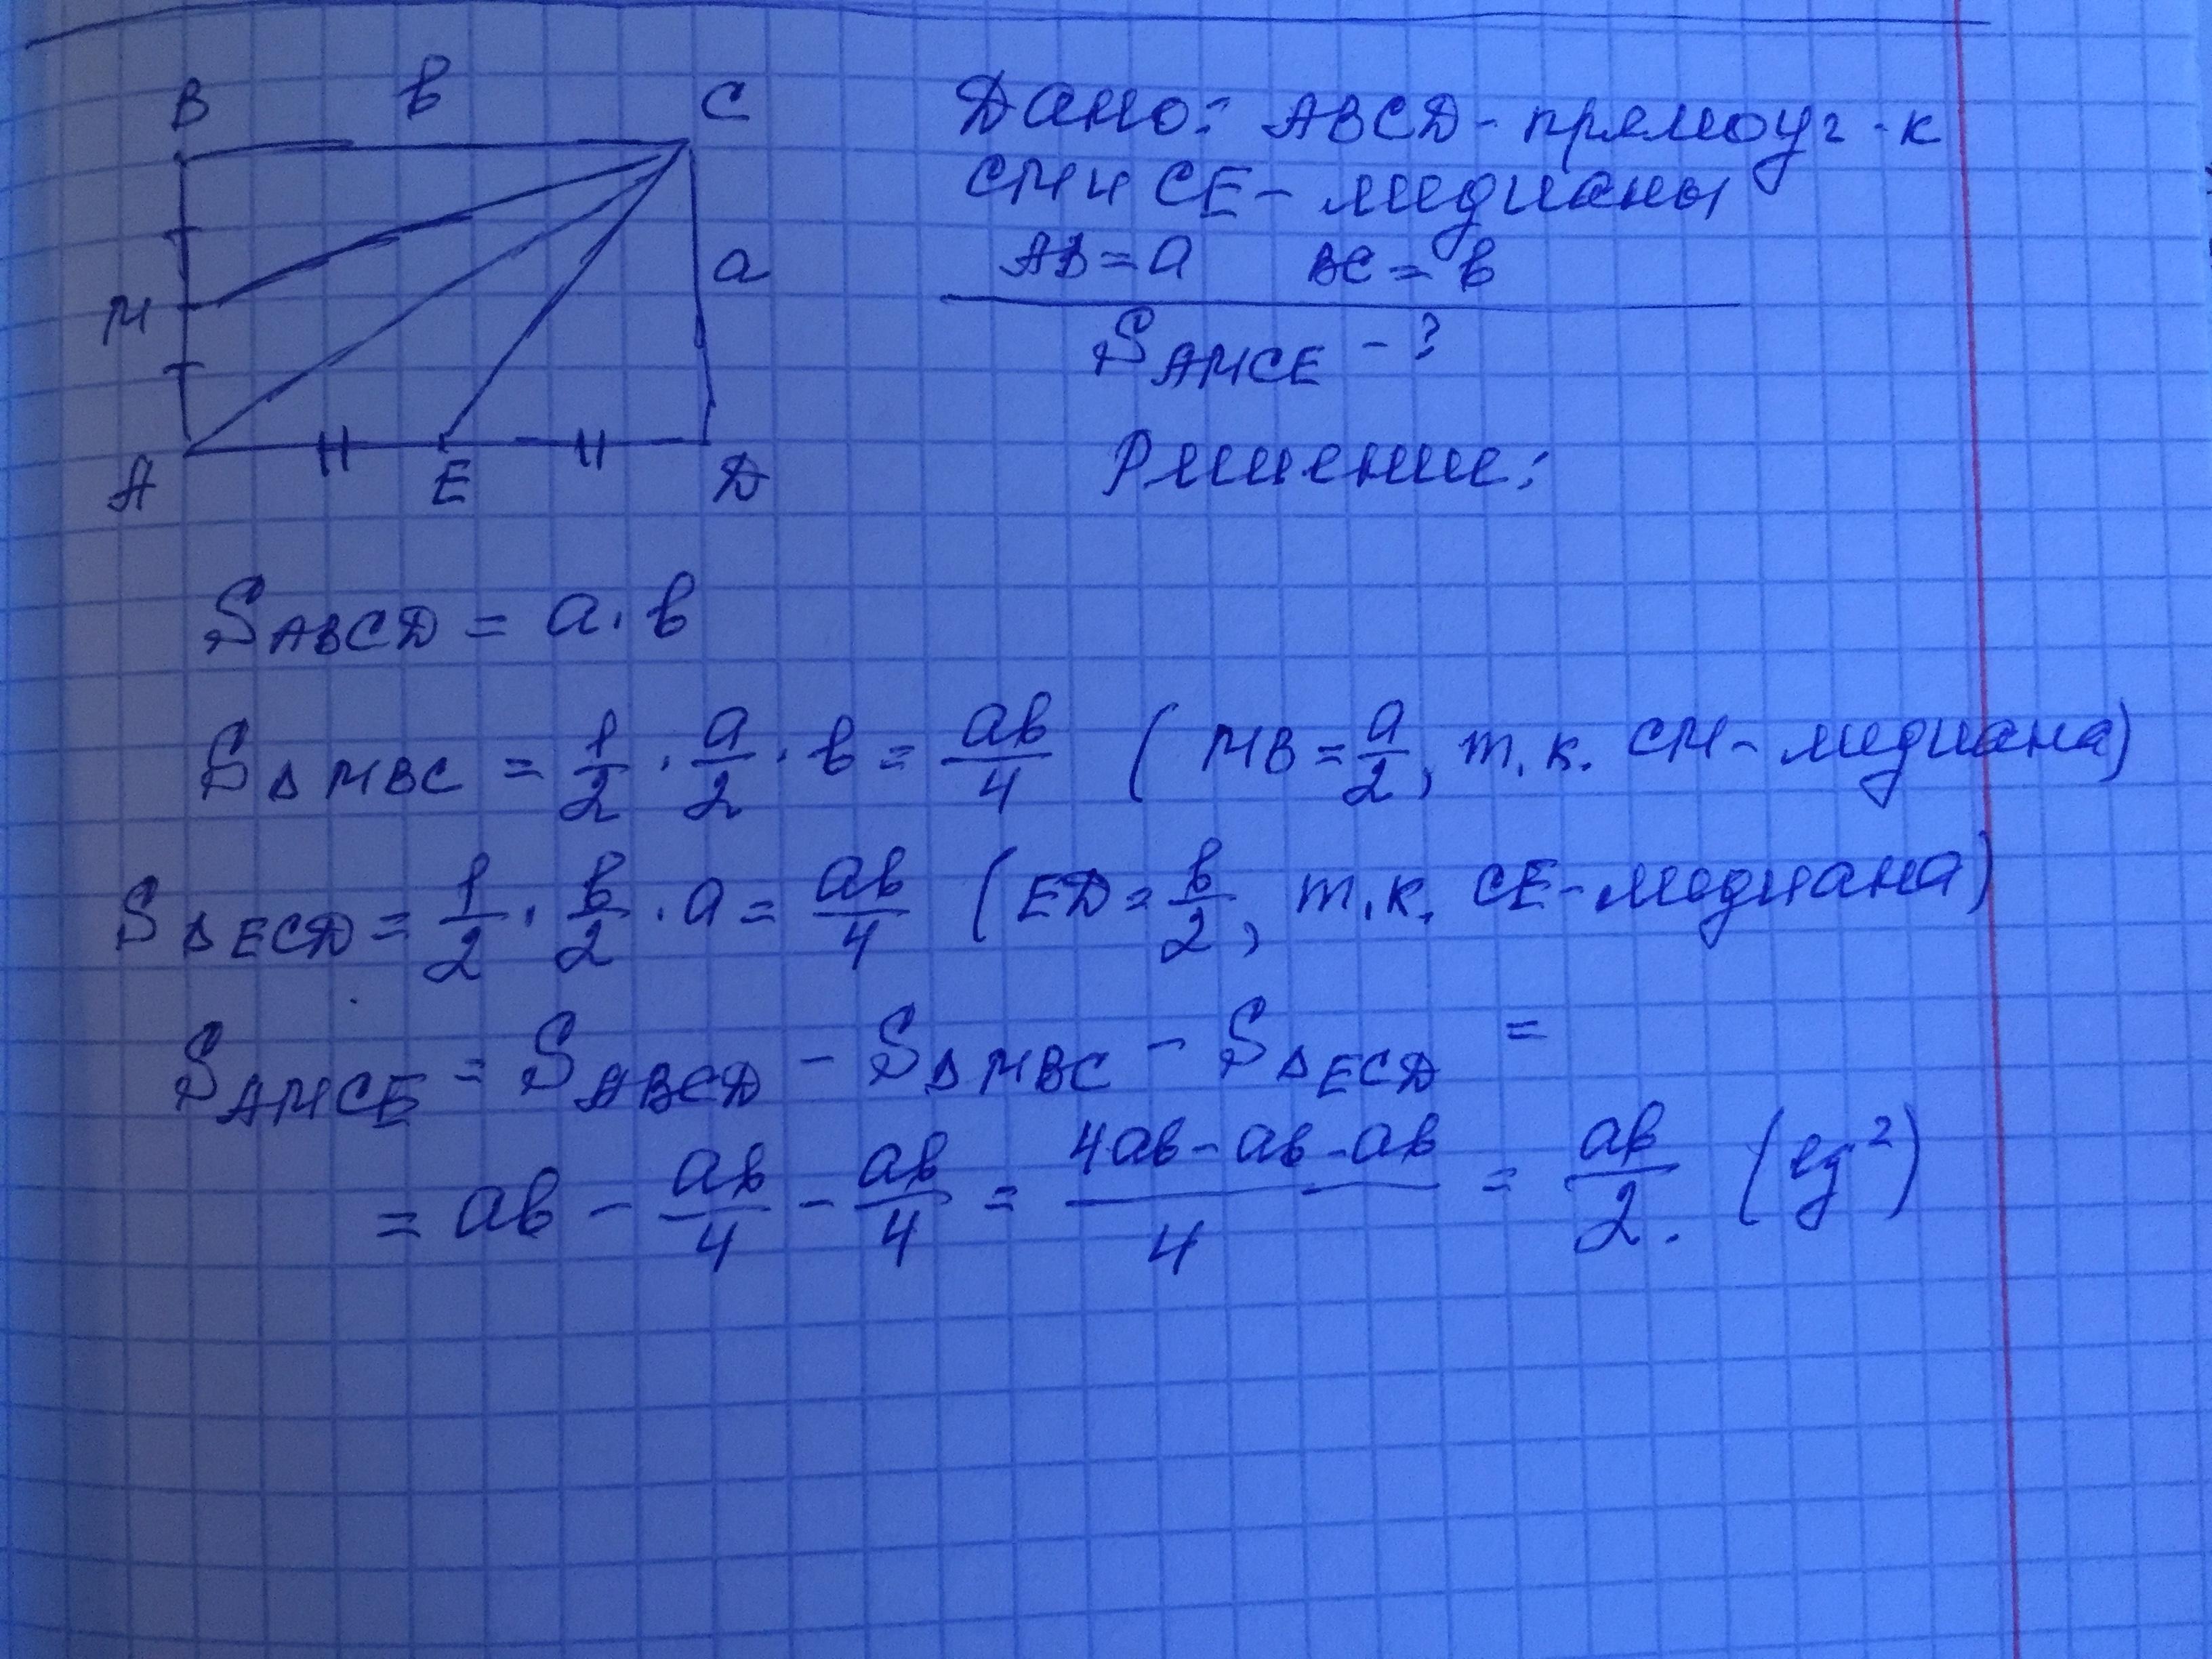 B в C
M a
A E D
Дано: ABCD - прямоуг-к
CM и CE - медианы
AB = a BC = в
S AMCE - ?
Решение:
S ABCD = a · в
S Δ MBC = 1/2 · a/2 · в = aв/4 (MB = a/2, т.к. CM - медиана)
S Δ ECD = 1/2 · в/2 · a = aв/4 (ED = в/2, т.к. CE - медиана)
S AMCE = S ABCD - S Δ MBC - S Δ ECD =
= aв - aв/4 - aв/4 = (4aв - aв - aв)/4 = aв/2. (ед²)